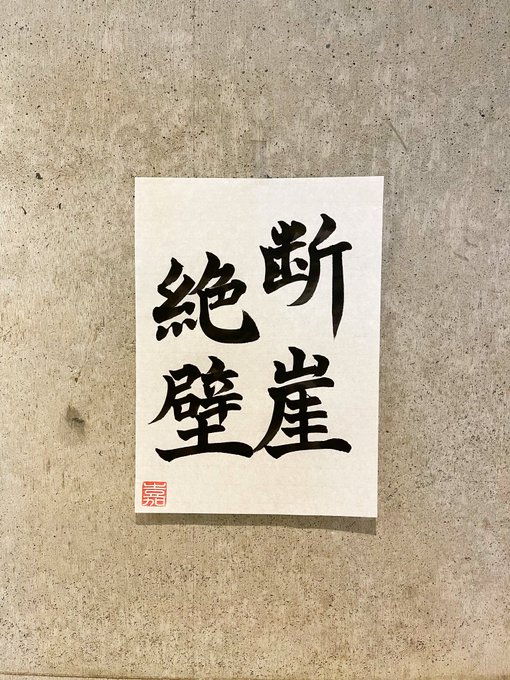 断崖
絶壁
嘉